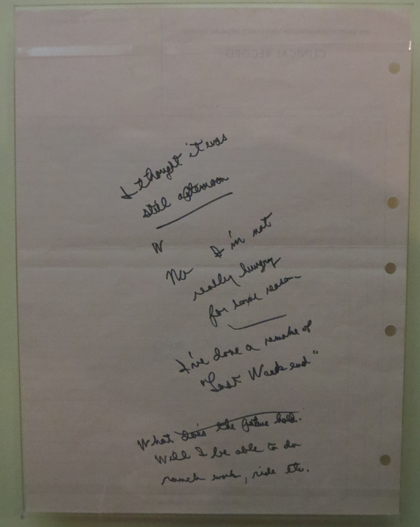 I thought it was
still afternoon
N
No I'm not
really hungry
for some reason
I've done a remake of
"Lost Weekend"
What does the future hold.
Will I be able to do
ranch work, ride etc.